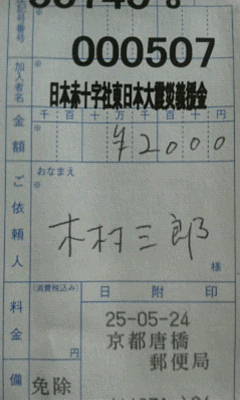 記号番号
000507
加入者名
日本赤十字社東日本大震災義援金
金額
千百十万千百十円
¥2000
ご依頼人
おなまえ
木村三郎
様
料金
(消費税込み)
円
日附印
25-05-24
京都唐橋
郵便局
備
免除